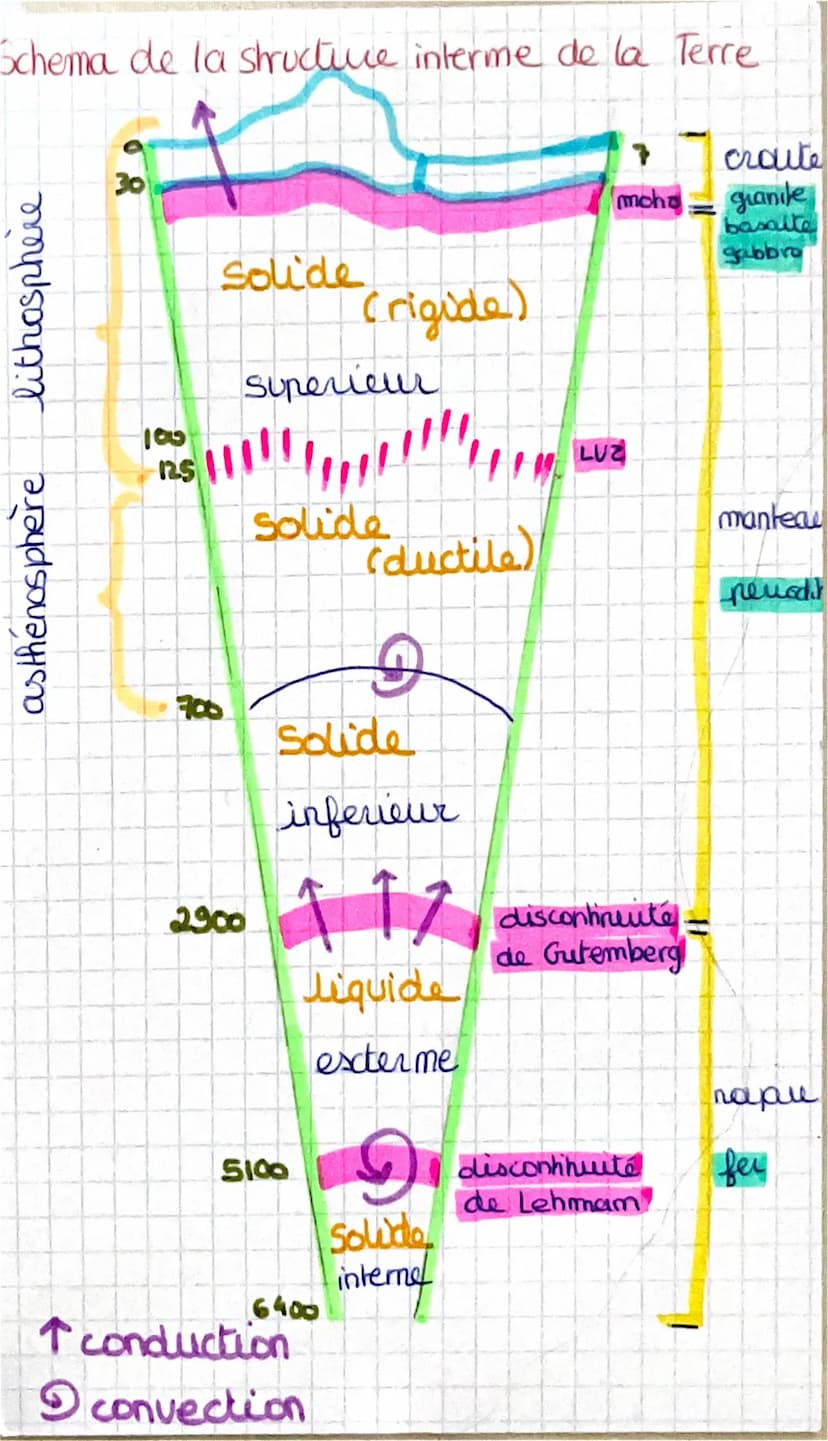 Schema de la structure interne de la Terre
0
7
croute
30
moho
granite
basalte
gabbro
lithosphère
solide
(rigide)
superieur
100
125
LVZ
asthénosphère
solide
(ductile)
manteau
700
solide
inferieur
2900
discontinuité
de Gutemberg
liquide
externe
noyau
5100
discontinuité
de Lehmam
fer
solide
interne
6400
↑ conduction
convection